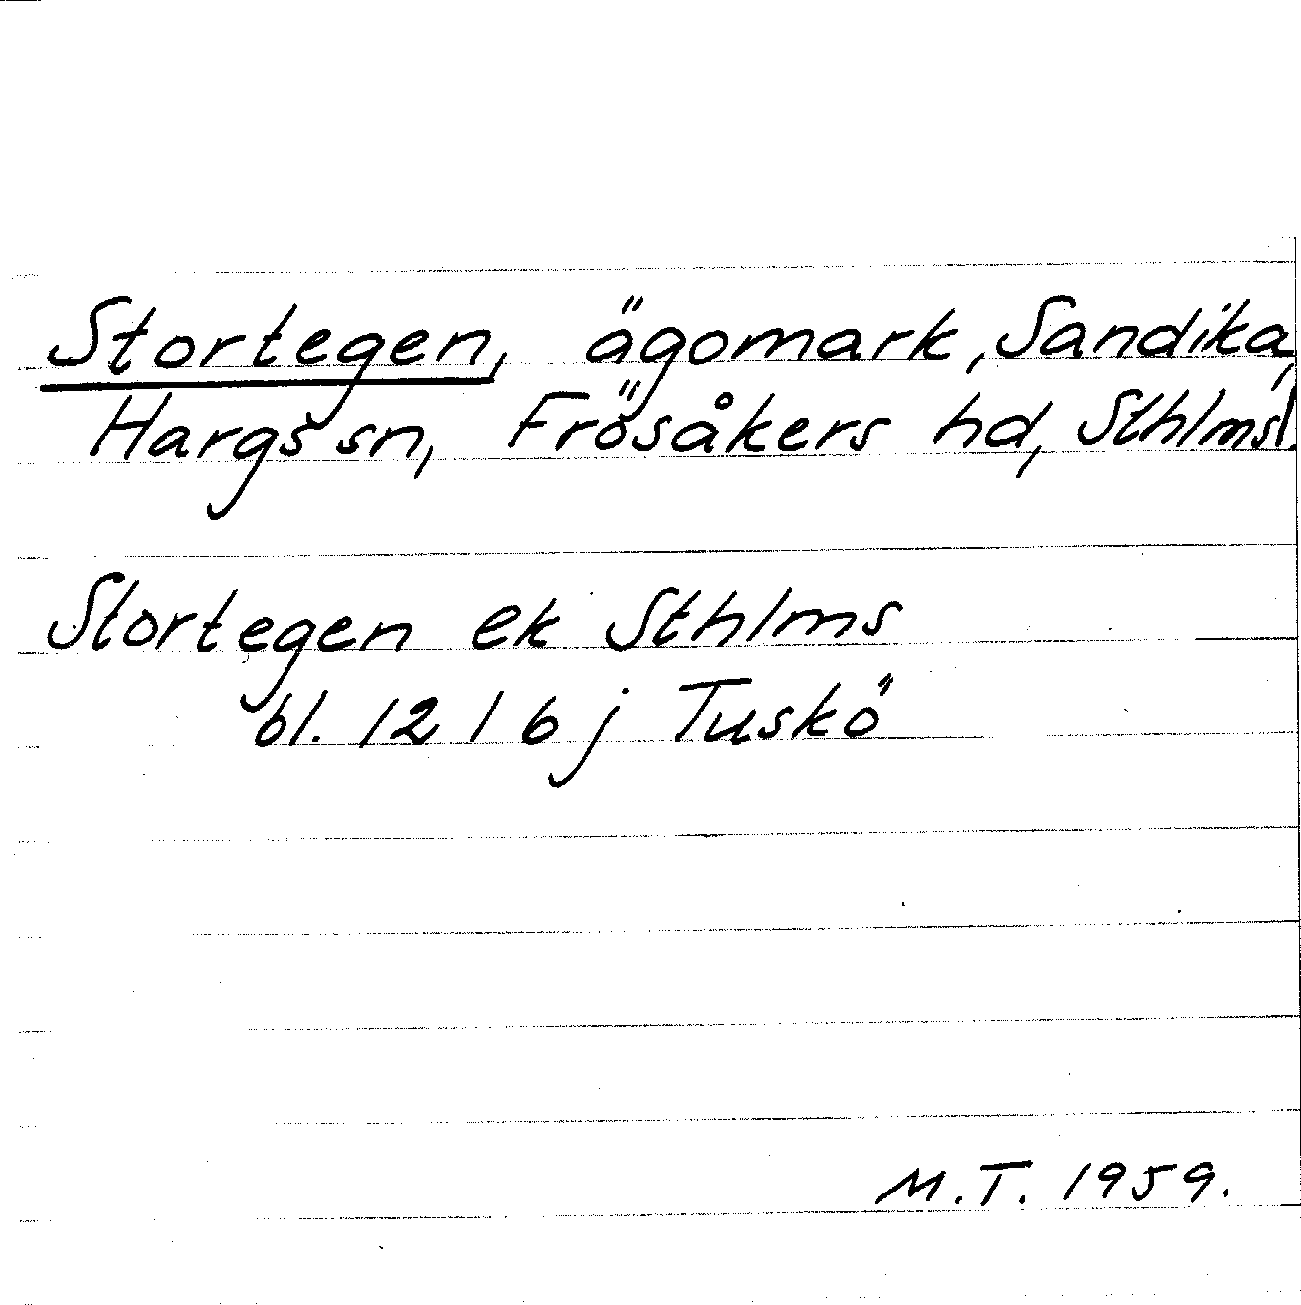 Stortegen, ägomark, Sandika,
Hargs sn, Frösåkers hd, Sthlmsl.
Stortegen ek Sthlms
bl. 12 I 6 j Tuskö
M.T. 1959.